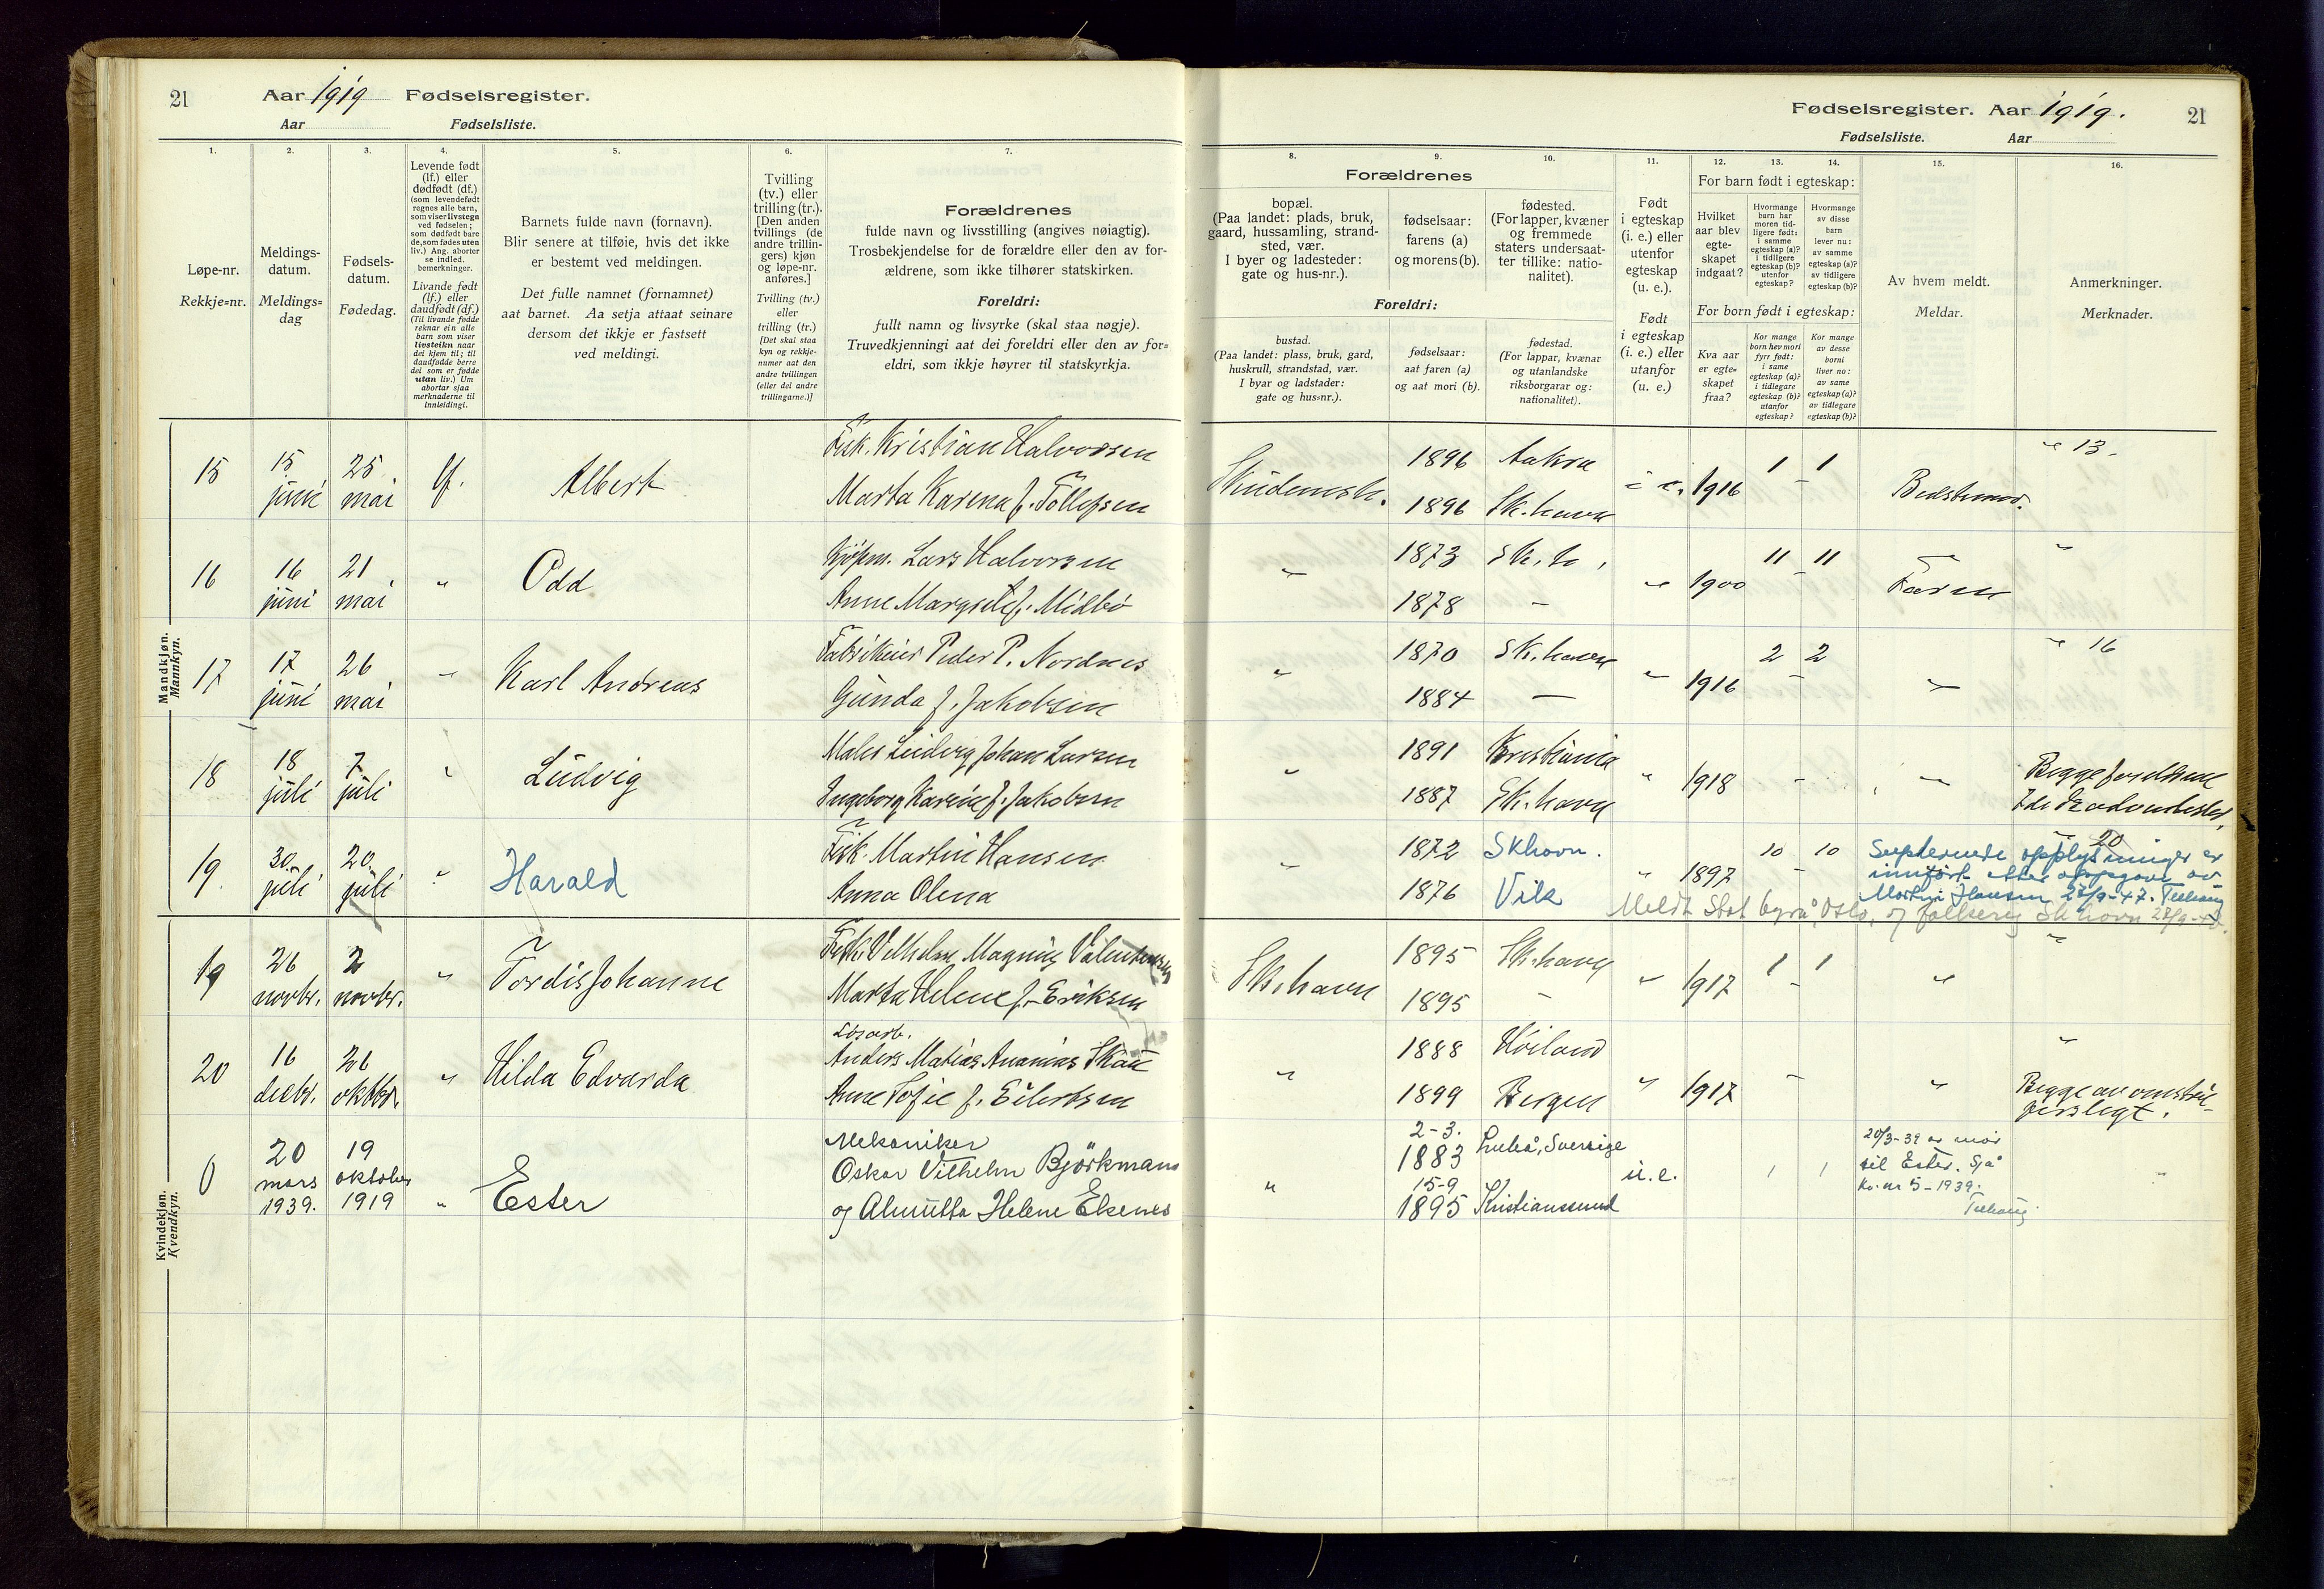 21 Aar 1919 Fødselsregister.
Aar Fødselsliste.
Fødselsregister. Aar 1919. 21
Fødselsliste. Aar
1. 2. 3. 4. 5. 6. 7.
Løpe-nr.
Rekkje=nr.
Meldings-
datum.
Meldings=
dag
Fødsels-
datum.
Fødedag.
Levende født
(lf.) eller
dødfødt (df.)
(som levendefødt
regnes alle barn,
som viser livstegn
ved fødselen;
som dødfødt bare
de, som fødes uten
liv.) Ang. aborter
se indled.
bemerkninger.
Livande født
(lf.) eller
daudfødt (df.)
(Til livande fødde
reknar ein alle
barn som viser
livsteikn naar
dei kjem til; til
daudfødde berre
dei som er fødde
utan liv.) Um
abortar sjaa
merknaderne til
innleidingi.
Barnets fulde navn (fornavn).
Blir senere at tilføie, hvis det ikke
er bestemt ved meldingen.
Det fulle namnet (fornamnet)
aat barnet. Aa setja attaat seinare
dersom det ikkje er fastsett
ved meldingi.
Tvilling
(tv.) eller
trilling (tr.).
[Den anden
tvillings (de
andre trillin-
gers) kjøn
og løpe-nr.
anføres.]
Tvilling (tv.)
eller
trilling (tr.)
[Det skal staa
kyn og rekkje-
numer aat den
andre tvillingen
(eller dei andre
trillingarne.)]
Forældrenes
fulde navn og livsstilling (angives nøiagtig).
Trosbekjendelse for de forældre eller den av for-
ældrene, som ikke tilhører statskirken.
Foreldri:
fullt namn og livsyrke (skal staa nøgje).
Truvedkjenningi aat dei foreldri eller den av for=
eldri, som ikkje høyrer til statskyrkja.
8. 9. 10. 11. 12. 13. 14. 15. 16.
Forældrenes
bopæl.
(Paa landet: plads, bruk,
gaard, hussamling, strand-
sted, vær.
I byer og ladesteder:
gate og hus-nr.).
fødselsaar:
farens (a)
og morens (b).
fødested.
(For lapper, kvæner
og fremmede
staters undersaat-
ter tillike: natio-
nalitet).
Foreldri:
bustad.
(Paa landet: plass, bruk, gard,
huskrull, strandstad, vær.
I byar og ladstader:
gate og hus=nr.).
fødselsaar:
aat faren (a)
og aat mori (b).
fødestad.
(For lappar, kvænar
og utanlandske
riksborgarar og:
nationalitet).
Født
i egteskap
(i. e.) eller
utenfor
egteskap
(u. e.).
Født
i egteskap
(i. e.) eller
utanfor
(u. e.)
For barn født i egteskap:
Hvilket
aar blev
egte-
skapet
indgaat?
Hvormange
barn har
moren tid-
ligere født:
i samme
egteskap (a)?
i tidligere
egteskap (b)?
utenfor
egteskap?
Hvormange
av disse
barn
lever nu:
av samme
egteskap (a)?
av tidligere
egteskap (b)?
For born født i egteskap:
Kva aar
er egte=
skapet
fraa?
Kor mange
born hev mori
fyrr født:
i same
egteskap (a)?
i tidlegare
egteskap (b)?
utanfor
egteskap?
Kor mange
av desse
borni
liver no:
av same
egteskap (a)?
av tidlegare
egteskap (b)?
Av hvem meldt.
Meldar.
Anmerkninger.
Merknader.
Mandkjøn.
Mannkyn.
15 15 juni 25 mai lf. Albert
Fisk. Kristian Halvorsen
Marta Karena f. Tollefsen
Skudenesh. 1896 Aakra i e. 1916 1 1 Bedstemor. " 13.
1896 Sk.havn
16 16 juni 21 mai " Odd
Kjøpm. Lars Halvorsen
Anne Margrete f. Midbö
" 1873 Sk.h. " 1900 11 11 Faren "
1878 —
17 17 juni 26 mai " Karl Andreas
Fabrikeier Peder P. Nordnes
Gunda f. Jakobsen
" 1870 Sk.havn " 1916 2 2 " " 16
1884 —
18 18 juli 7 juli " Ludvig
Maler Ludvig Johan Larsen
Ingeborg Karine f. Jakobsen
" 1891 Kristiania " 1918 - " Begge forældrene
1887 Sk.havn 7de d. adventister.
19 30 juli 20 juli " Harald
Fisk. Martin Hansen
Anna Olena
" 1872 Skhavn. " 1897 10 10 " 20
1876 Vik
Suplerende opplysninger er
innført etter oppgave av
Martin Hansen 27/9-47. Telhaug
Meldt Stat. byrå, Oslo, og folkereg. Sk.havn 27/9-47.
Kvindekjøn.
Kvendkyn.
19 26 novbr. 2 novbr. " Tordis Johanne
Fisk. Vilhelm Magnus Valentinsen
Marta Helene f. Eriksen
Sk.havn 1895 Sk.havn " 1917 1 1 " "
1895 —
20 16 desbr. 26 oktbr. " Hilda Edvarda
Løsarb.
Anders Matias Ananias Skau
Anne Sofie f. Eilertsen
" 1888 Höiland " 1917 - " "
1899 Bergen
Begge av omstrei-
ferslegt.
0 20 mars 1939. 19 oktober 1919 " Ester
Mekaniker
Oskar Vilhelm Björkmann
og Alnutta Helene Elsenes
" 2-3. 1883 Luleå, Sverige u.e.
15-9 1895 Kristianssund
20/3-39 av mor
til Ester. Sjå
kv. nr 5 - 1939.
Telhaug